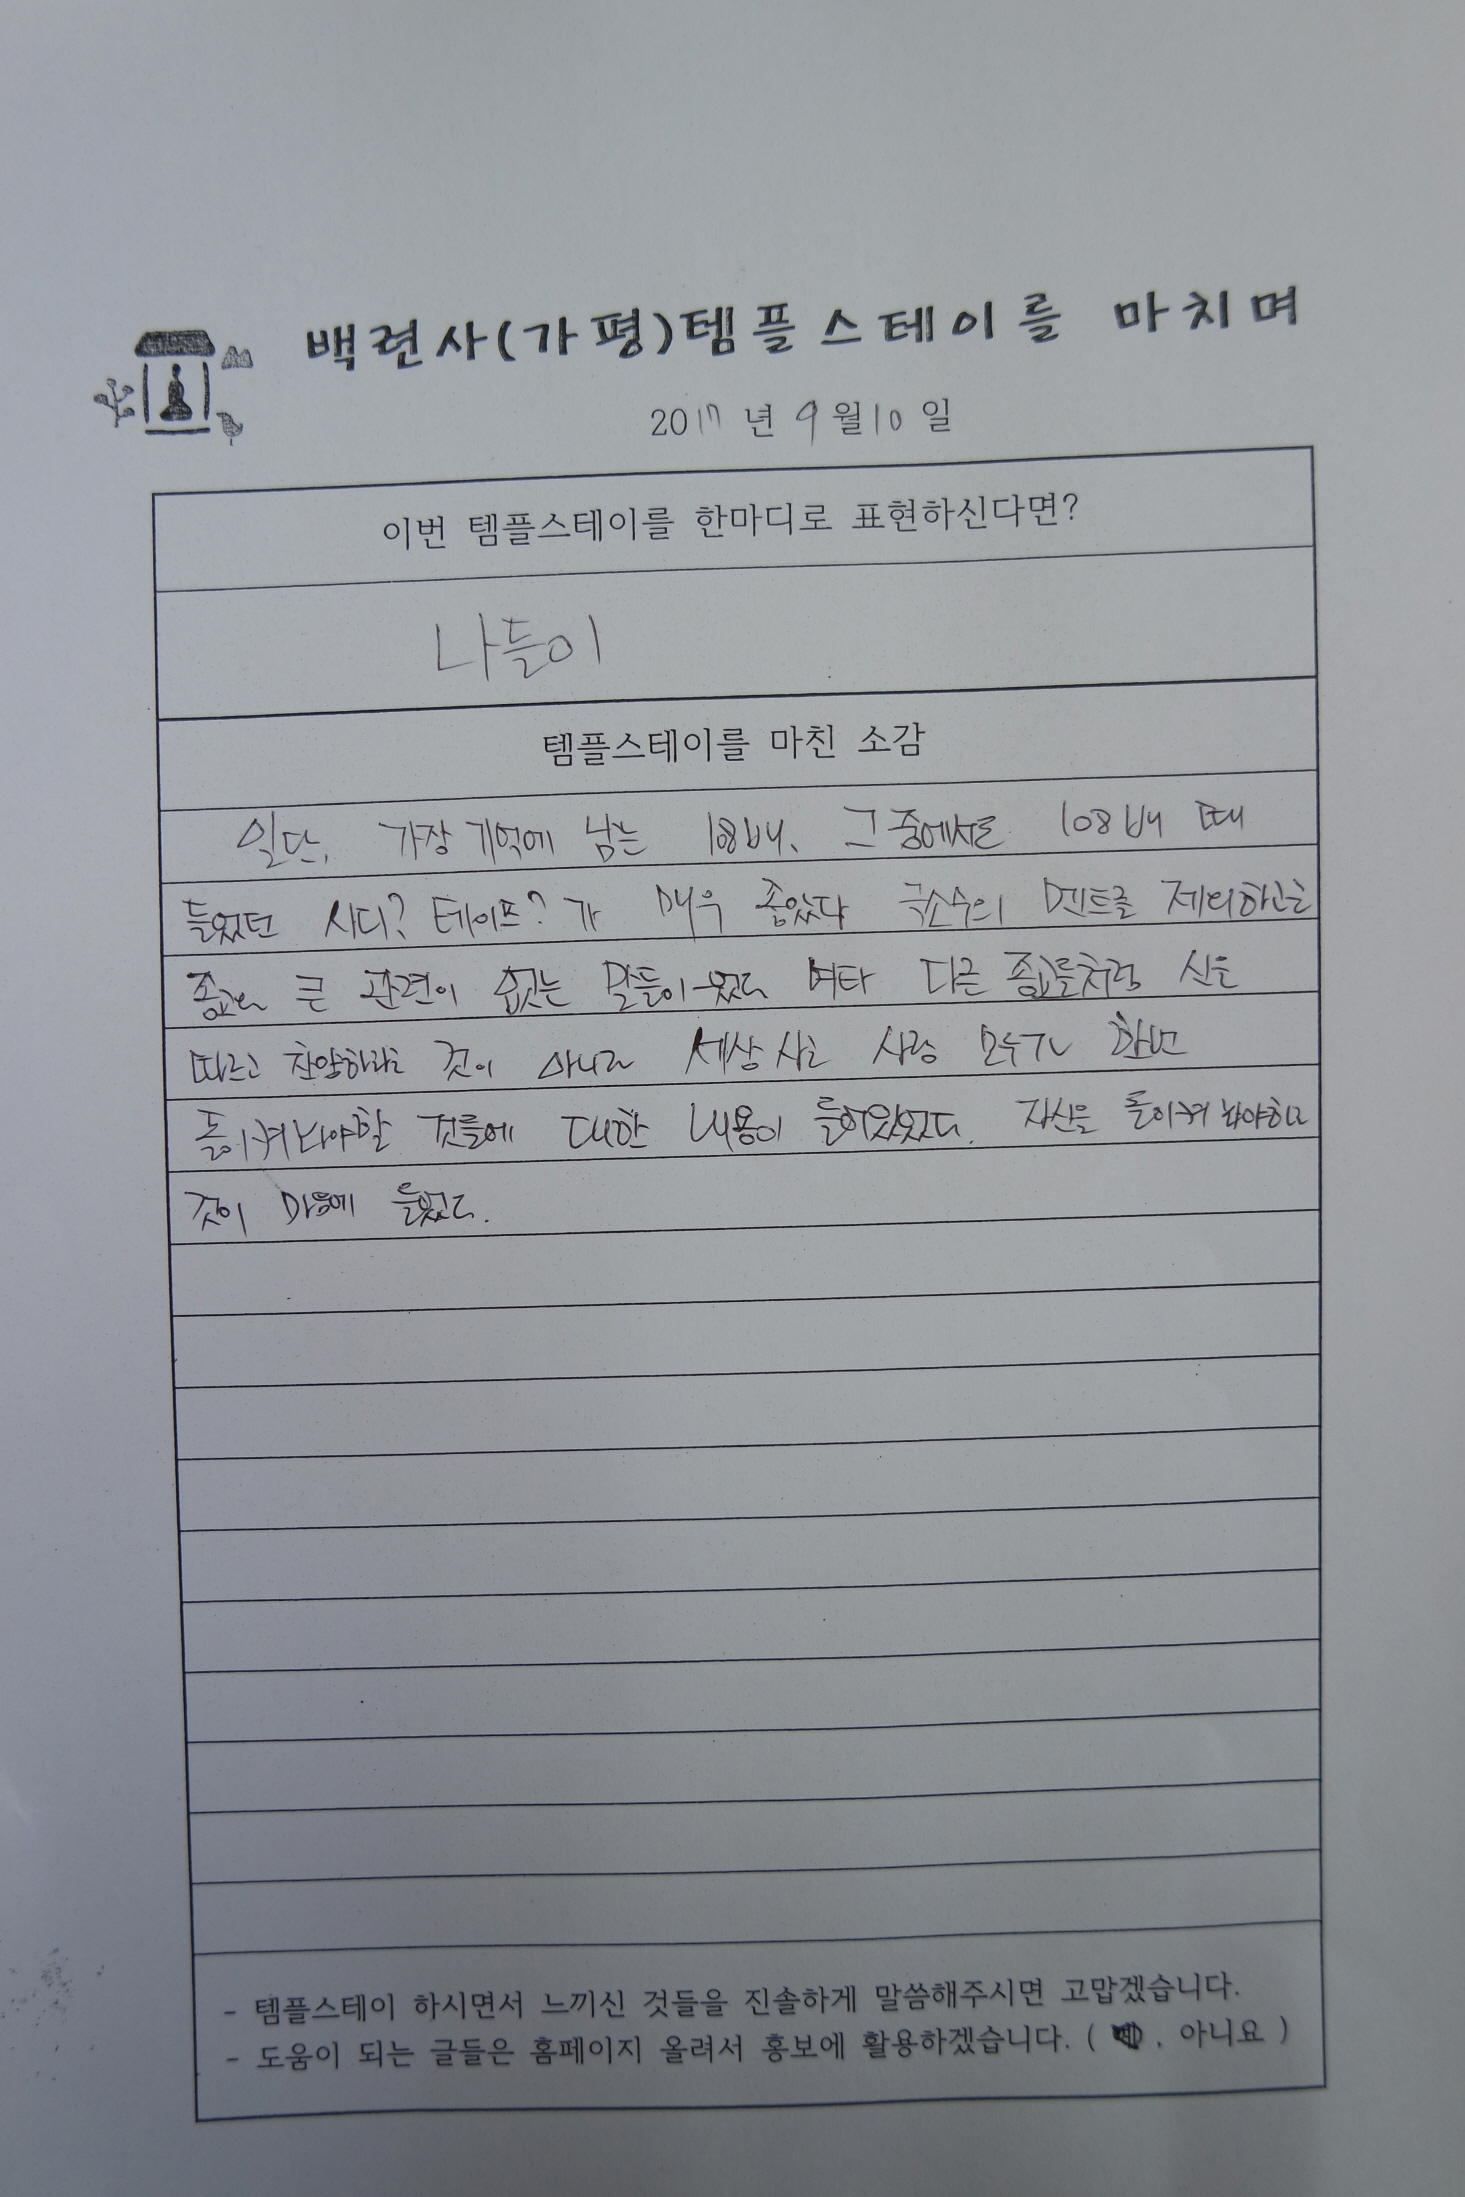 백련사(가평)템플스테이를 마치며
2017년 9월 10일
이번 템플스테이를 한마디로 표현하신다면?
나들이
템플스테이를 마친 소감
일단, 가장 기억에 남는 108배. 그 중에서도 108배 때
들었던 시디? 테이프? 가 매우 좋았다 극소수의 멘트를 제외하고는
종교와 큰 관련이 없는 말들이었다 여타 다른 종교들처럼 신을
따르고 찬양하라는 것이 아니라 세상 사는 사람 모두가 한번
돌이켜봐야할 것들에 대한 내용이 들어있었다. 자신을 돌이켜 봐야하는
것이 마음에 들었다.
- 템플스테이 하시면서 느끼신 것들을 진솔하게 말씀해주시면 고맙겠습니다.
- 도움이 되는 글들은 홈페이지 올려서 홍보에 활용하겠습니다. ( , 아니요 )